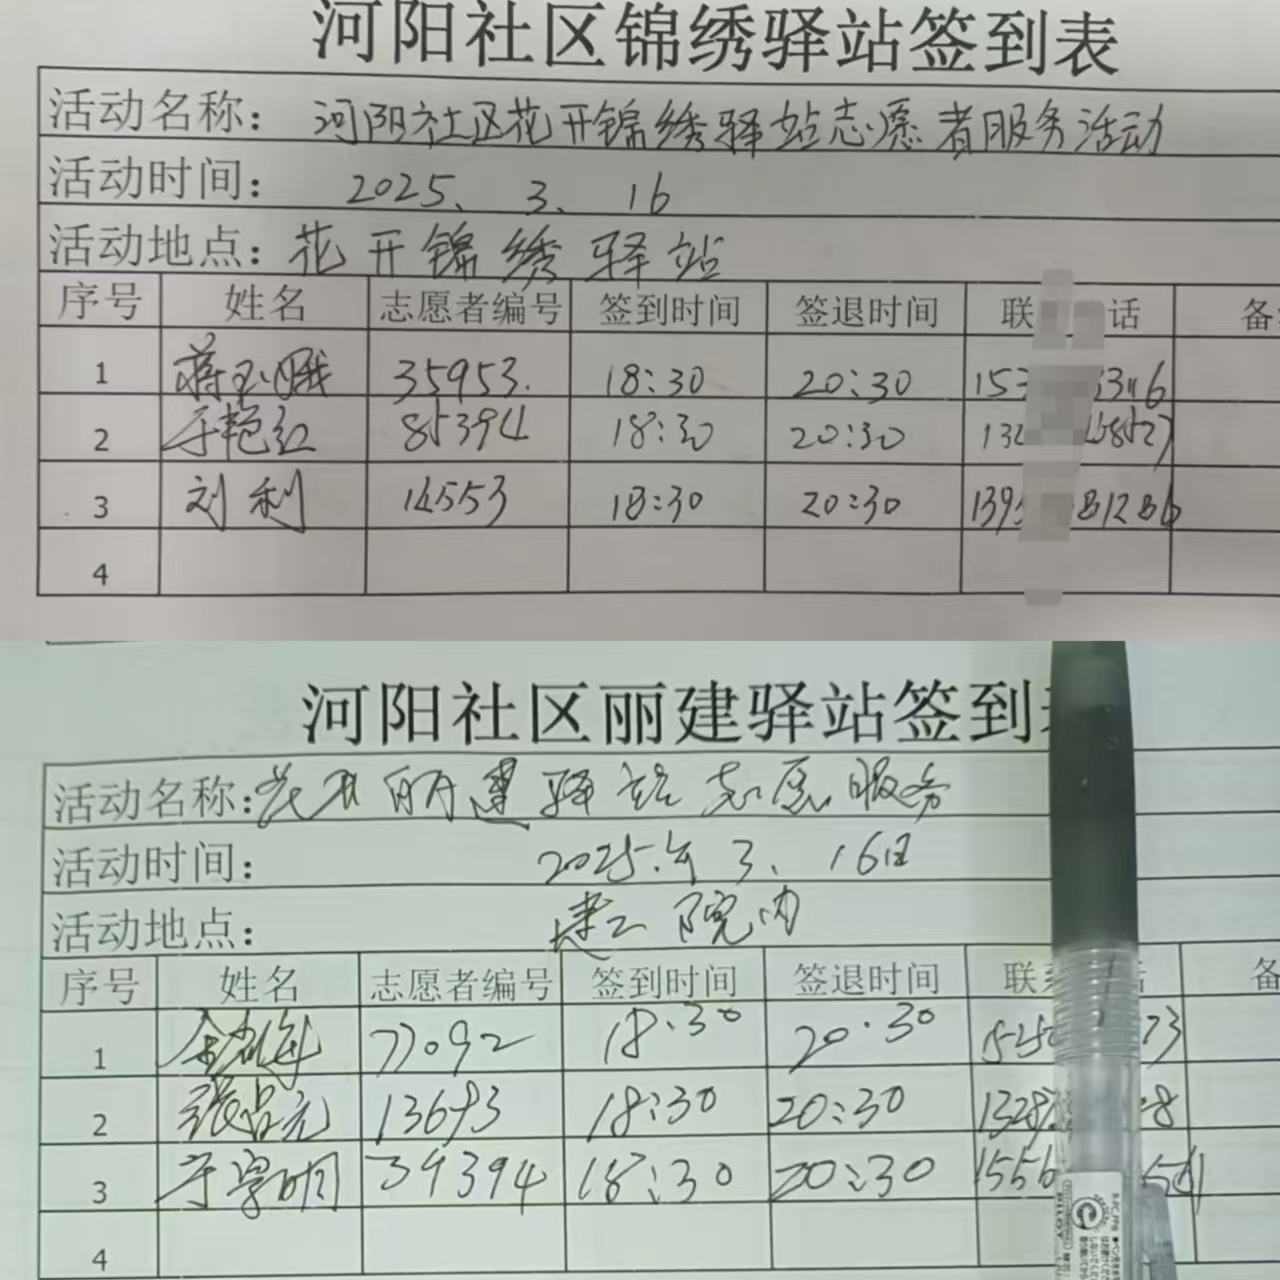 河阳社区锦绣驿站签到表
活动名称: 河阳社区花开锦绣驿站志愿者服务活动
活动时间: 2025、3、16
活动地点: 花开锦绣驿站
序号 姓名 志愿者编号 签到时间 签退时间 联 话 备
1 蒋玉娥 35953. 18:30 20:30 153
2 于艳红 85394 18:30 20:30
3 刘利 14553 18:30 20:30 139 81286
4
河阳社区丽建驿站签到
活动名称: 花开丽建驿站志愿服务
活动时间: 2025.年3、16日
活动地点: 建工院内
序号 姓名 志愿者编号 签到时间 签退时间 联 备
1 77092 18:30 20:30 73
2 张占元 13693 18:30 20:30 1328 8
3 于学明 39394 18:30 20:30 1556
4
PILOT